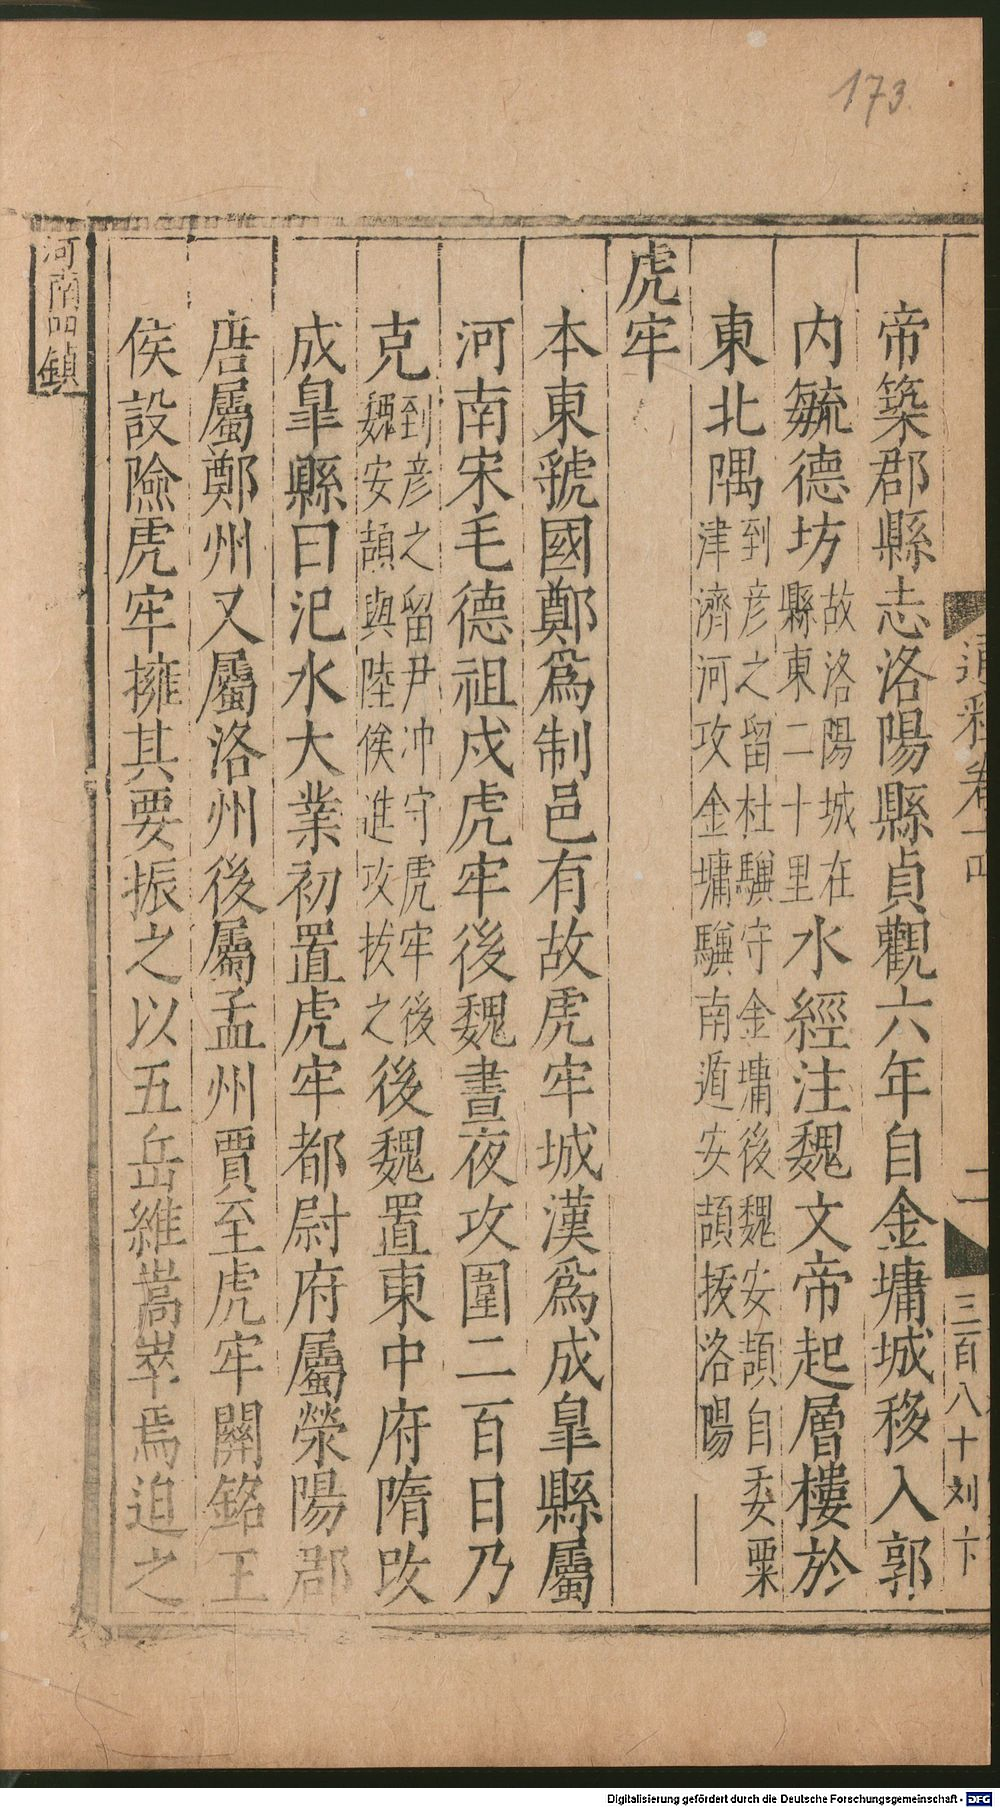 173.
通釋卷十四
二
三百八十刘卞
帝築郡縣志洛陽縣貞觀六年自金墉城移入郭
内毓德坊故洛陽城在縣東二十里水經注魏文帝起層樓於
東北隅到彦之留杜驥守金墉後魏安頡自委粟津濟河攻金墉驥南遁安頡拔洛陽
虎牢
本東虢國鄭爲制邑有故虎牢城漢爲成臯縣屬
河南宋毛德祖戍虎牢後魏晝夜攻圍二百日乃
克到彦之留尹冲守虎牢後魏安頡與陸俟進攻拔之後魏置東中府隋改
成臯縣曰汜水大業初置虎牢都尉府屬滎陽郡
唐屬鄭州又屬洛州後屬孟州賈至虎牢關銘王
侯設險虎牢擁其要振之以五岳維嵩崒焉迫之
河南四鎮
Digitalisierung gefördert durch die Deutsche Forschungsgemeinschaft - DFG